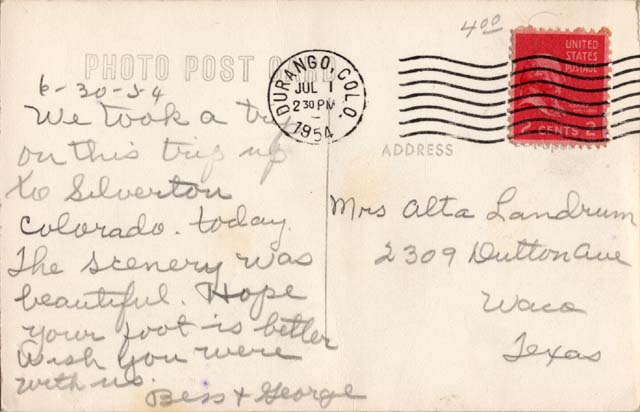 4.00
UNITED
STATES
POSTAGE
2 CENTS 2
PHOTO POST CARD
DURANGO, COLO.
JUL 1
2 30 PM
1954
ADDRESS
6-30-54
We took a
on this trip up
to Silverton
Colorado. today.
The scenery was
beautiful. Hope
your foot is better
Wish you were
with us.
Bess + George
Mrs Alta Landrum
2309 Dutton Ave
Waco
Texas